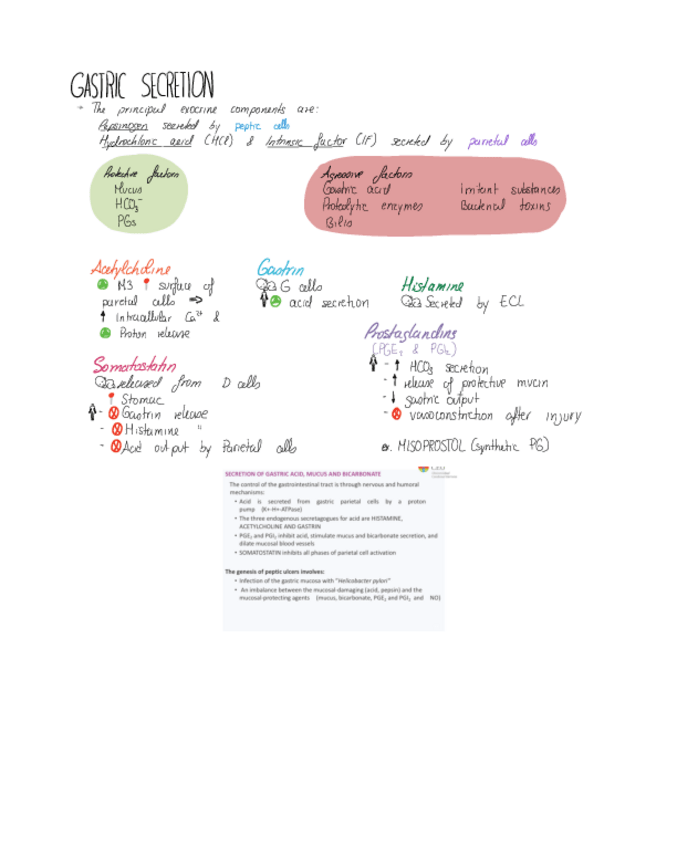 GASTRIC SECRETION
→ The principal exocrine components are:
Pepsinogen secreted by peptic cells
Hydrochloric acid (HCl) & Intrinsic factor (IF) secreted by parietal cells
Protective factors
Mucus
HCO3-
PGs
Agressive factors
Gastric acid irritant substances
Proteolytic enzymes Bacterial toxins
Bilis
Acetylcholine
M3 surface of
parietal cells ⇒
↑ intracellular Ca2+ &
Proton release
Gastrin
G cells
acid secretion
Histamine
Secreted by ECL
Prostaglandins
(PGE2 & PGI2)
- ↑ HCO3 secretion
- ↑ release of protective mucin
- ↓ gastric output
- vasoconstriction after injury
ex. MISOPROSTOL (synthetic PG)
Somatostatin
released from D cells
Stomac
- Gastrin release
- Histamine "
- Acid output by Parietal cells
SECRETION OF GASTRIC ACID, MUCUS AND BICARBONATE
The control of the gastrointestinal tract is through nervous and humoral
mechanisms:
• Acid is secreted from gastric parietal cells by a proton
pump (K+-H+-ATPase)
• The three endogenous secretagogues for acid are HISTAMINE,
ACETYLCHOLINE AND GASTRIN
• PGE2 and PGI2 inhibit acid, stimulate mucus and bicarbonate secretion, and
dilate mucosal blood vessels
• SOMATOSTATIN inhibits all phases of parietal cell activation
The genesis of peptic ulcers involves:
• Infection of the gastric mucosa with "Helicobacter pylori"
• An imbalance between the mucosal-damaging (acid, pepsin) and the
mucosal-protecting agents (mucus, bicarbonate, PGE2 and PGI2 and NO)